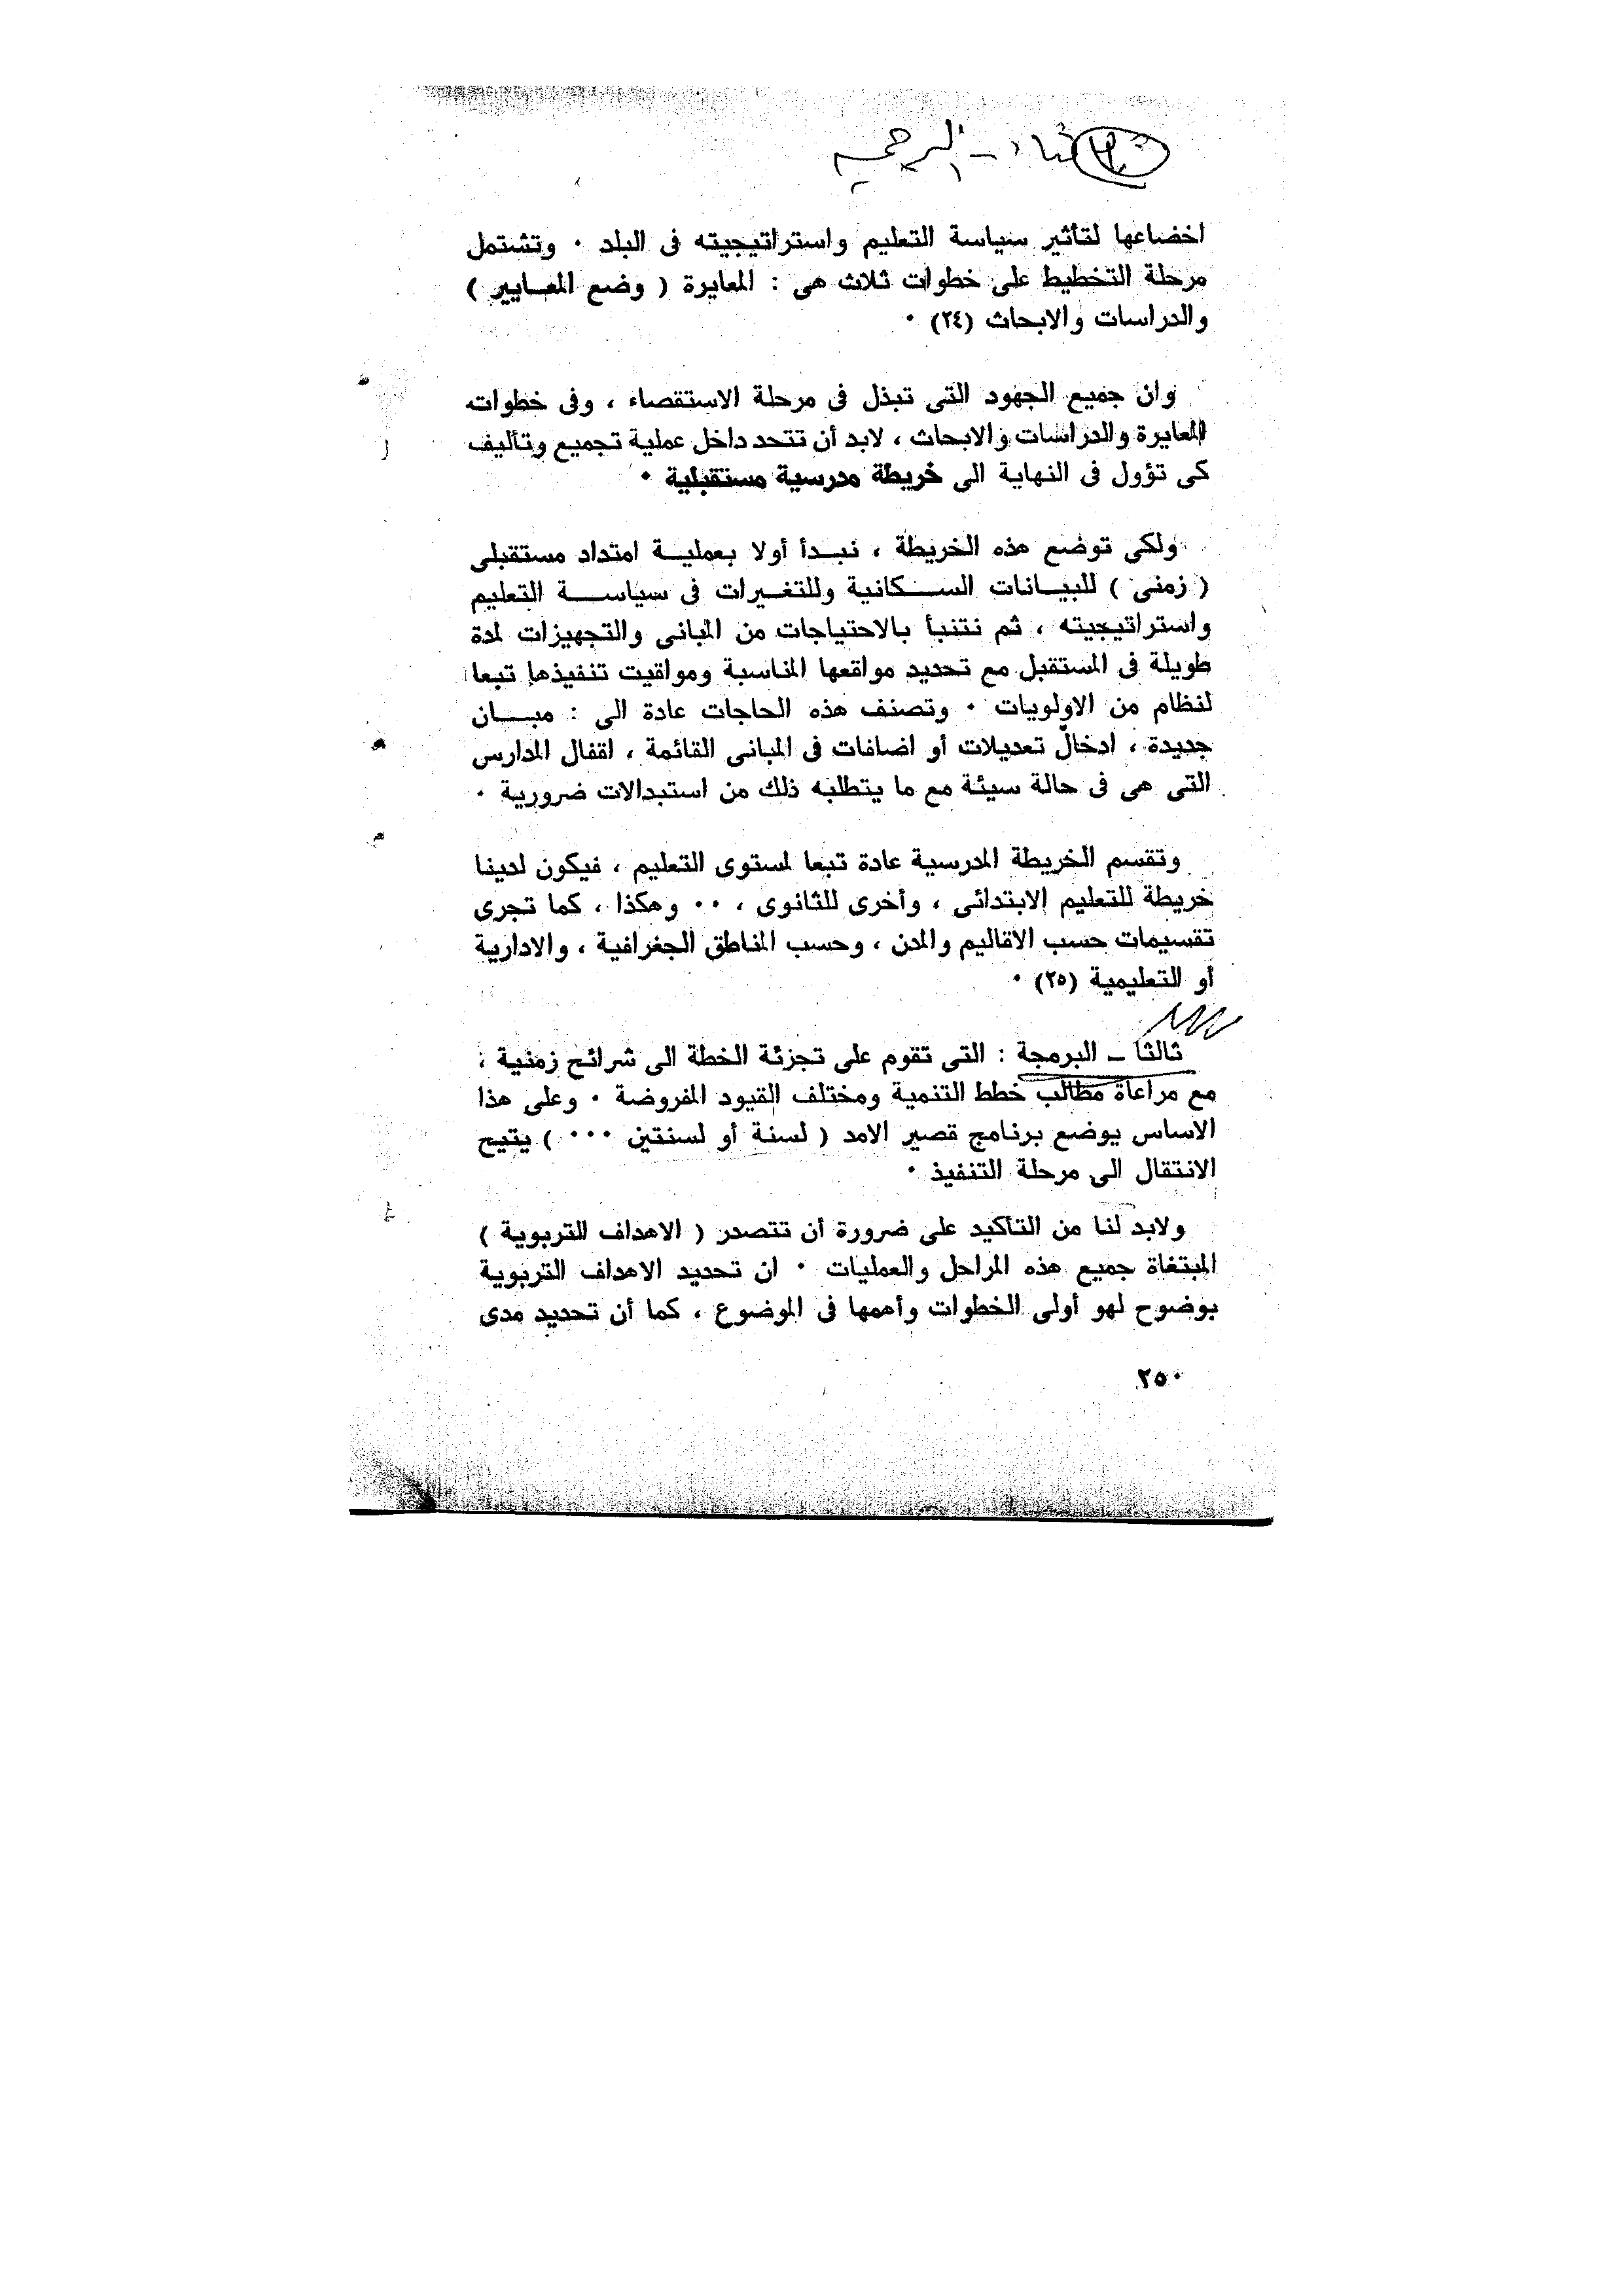 اخضاعها لتأثير سياسة التعليم واستراتيجيته فى البلد ٠ وتشتمل
مرحلة التخطيط على خطوات ثلاث هى : المعايرة ( وضع المعـايير )
والدراسات والابحاث (٢٤) ٠
وان جميع الجهود التى تبذل فى مرحلة الاستقصاء ، وفى خطوات
المعايرة والدراسات والابحاث ، لابد أن تتحد داخل عملية تجميع وتأليف
كى تؤول فى النهاية الى خريطة مدرسية مستقبلية ٠
ولكى توضع هذه الخريطة ، نبـدأ أولا بعمليـة امتداد مستقبلى
( زمنى ) للبيـانات السـكانية وللتغـيرات فى سياسـة التعليم
واستراتيجيته ، ثم نتنبأ بالاحتياجات من المبانى والتجهيزات لمدة
طويلة فى المستقبل مع تحديد مواقعها المناسبة ومواقيت تنفيذها تبعا
لنظام من الاولويات ٠ وتصنف هذه الحاجات عادة الى : مبـان
جديدة ، ادخال تعديلات أو اضافات فى المبانى القائمة ، اقفال المدارس
التى هى فى حالة سيئة مع ما يتطلبه ذلك من استبدالات ضرورية ٠
وتقسم الخريطة المدرسية عادة تبعا لمستوى التعليم ، فيكون لدينا
خريطة للتعليم الابتدائى ، وأخرى للثانوى ، ٠٠ وهكذا ، كما تجرى
تقسيمات حسب الاقاليم والمدن ، وحسب المناطق الجغرافية ، والادارية
أو التعليمية (٢٥) ٠
ثالثا ــ البرمجة : التى تقوم على تجزئة الخطة الى شرائح زمنية ،
مع مراعاة مطالب خطط التنمية ومختلف القيود المفروضة ٠ وعلى هذا
الاساس يوضع برنامج قصير الامد ( لسنة أو لسنتين ٠٠٠ ) يتيح
الانتقال الى مرحلة التنفيذ ٠
ولابد لنا من التأكيد على ضرورة أن تتصدر ( الاهداف التربوية )
المبتغاة جميع هذه المراحل والعمليات ٠ ان تحديد الاهداف التربوية
بوضوح لهو أولى الخطوات وأهمها فى الموضوع ، كما أن تحديد مدى
٢٥٠